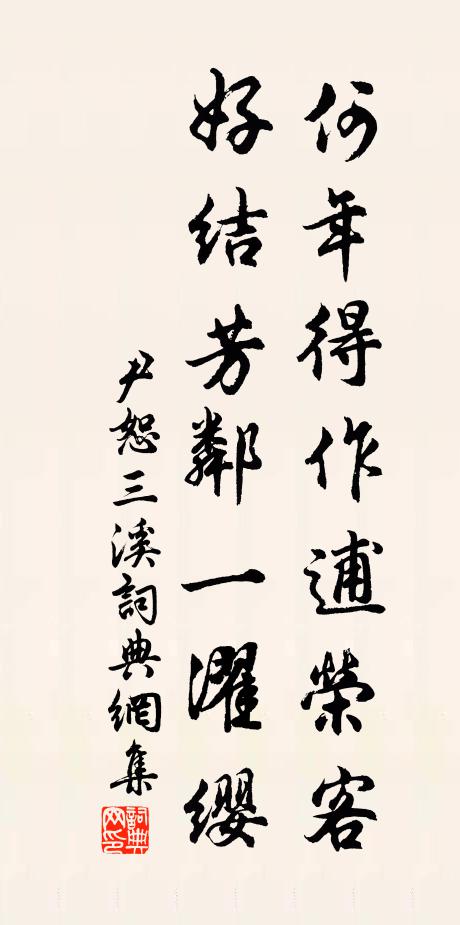 何年得作逋榮客
好結芳鄰一濯纓
尹恕三溪詞典網集
詞典網印